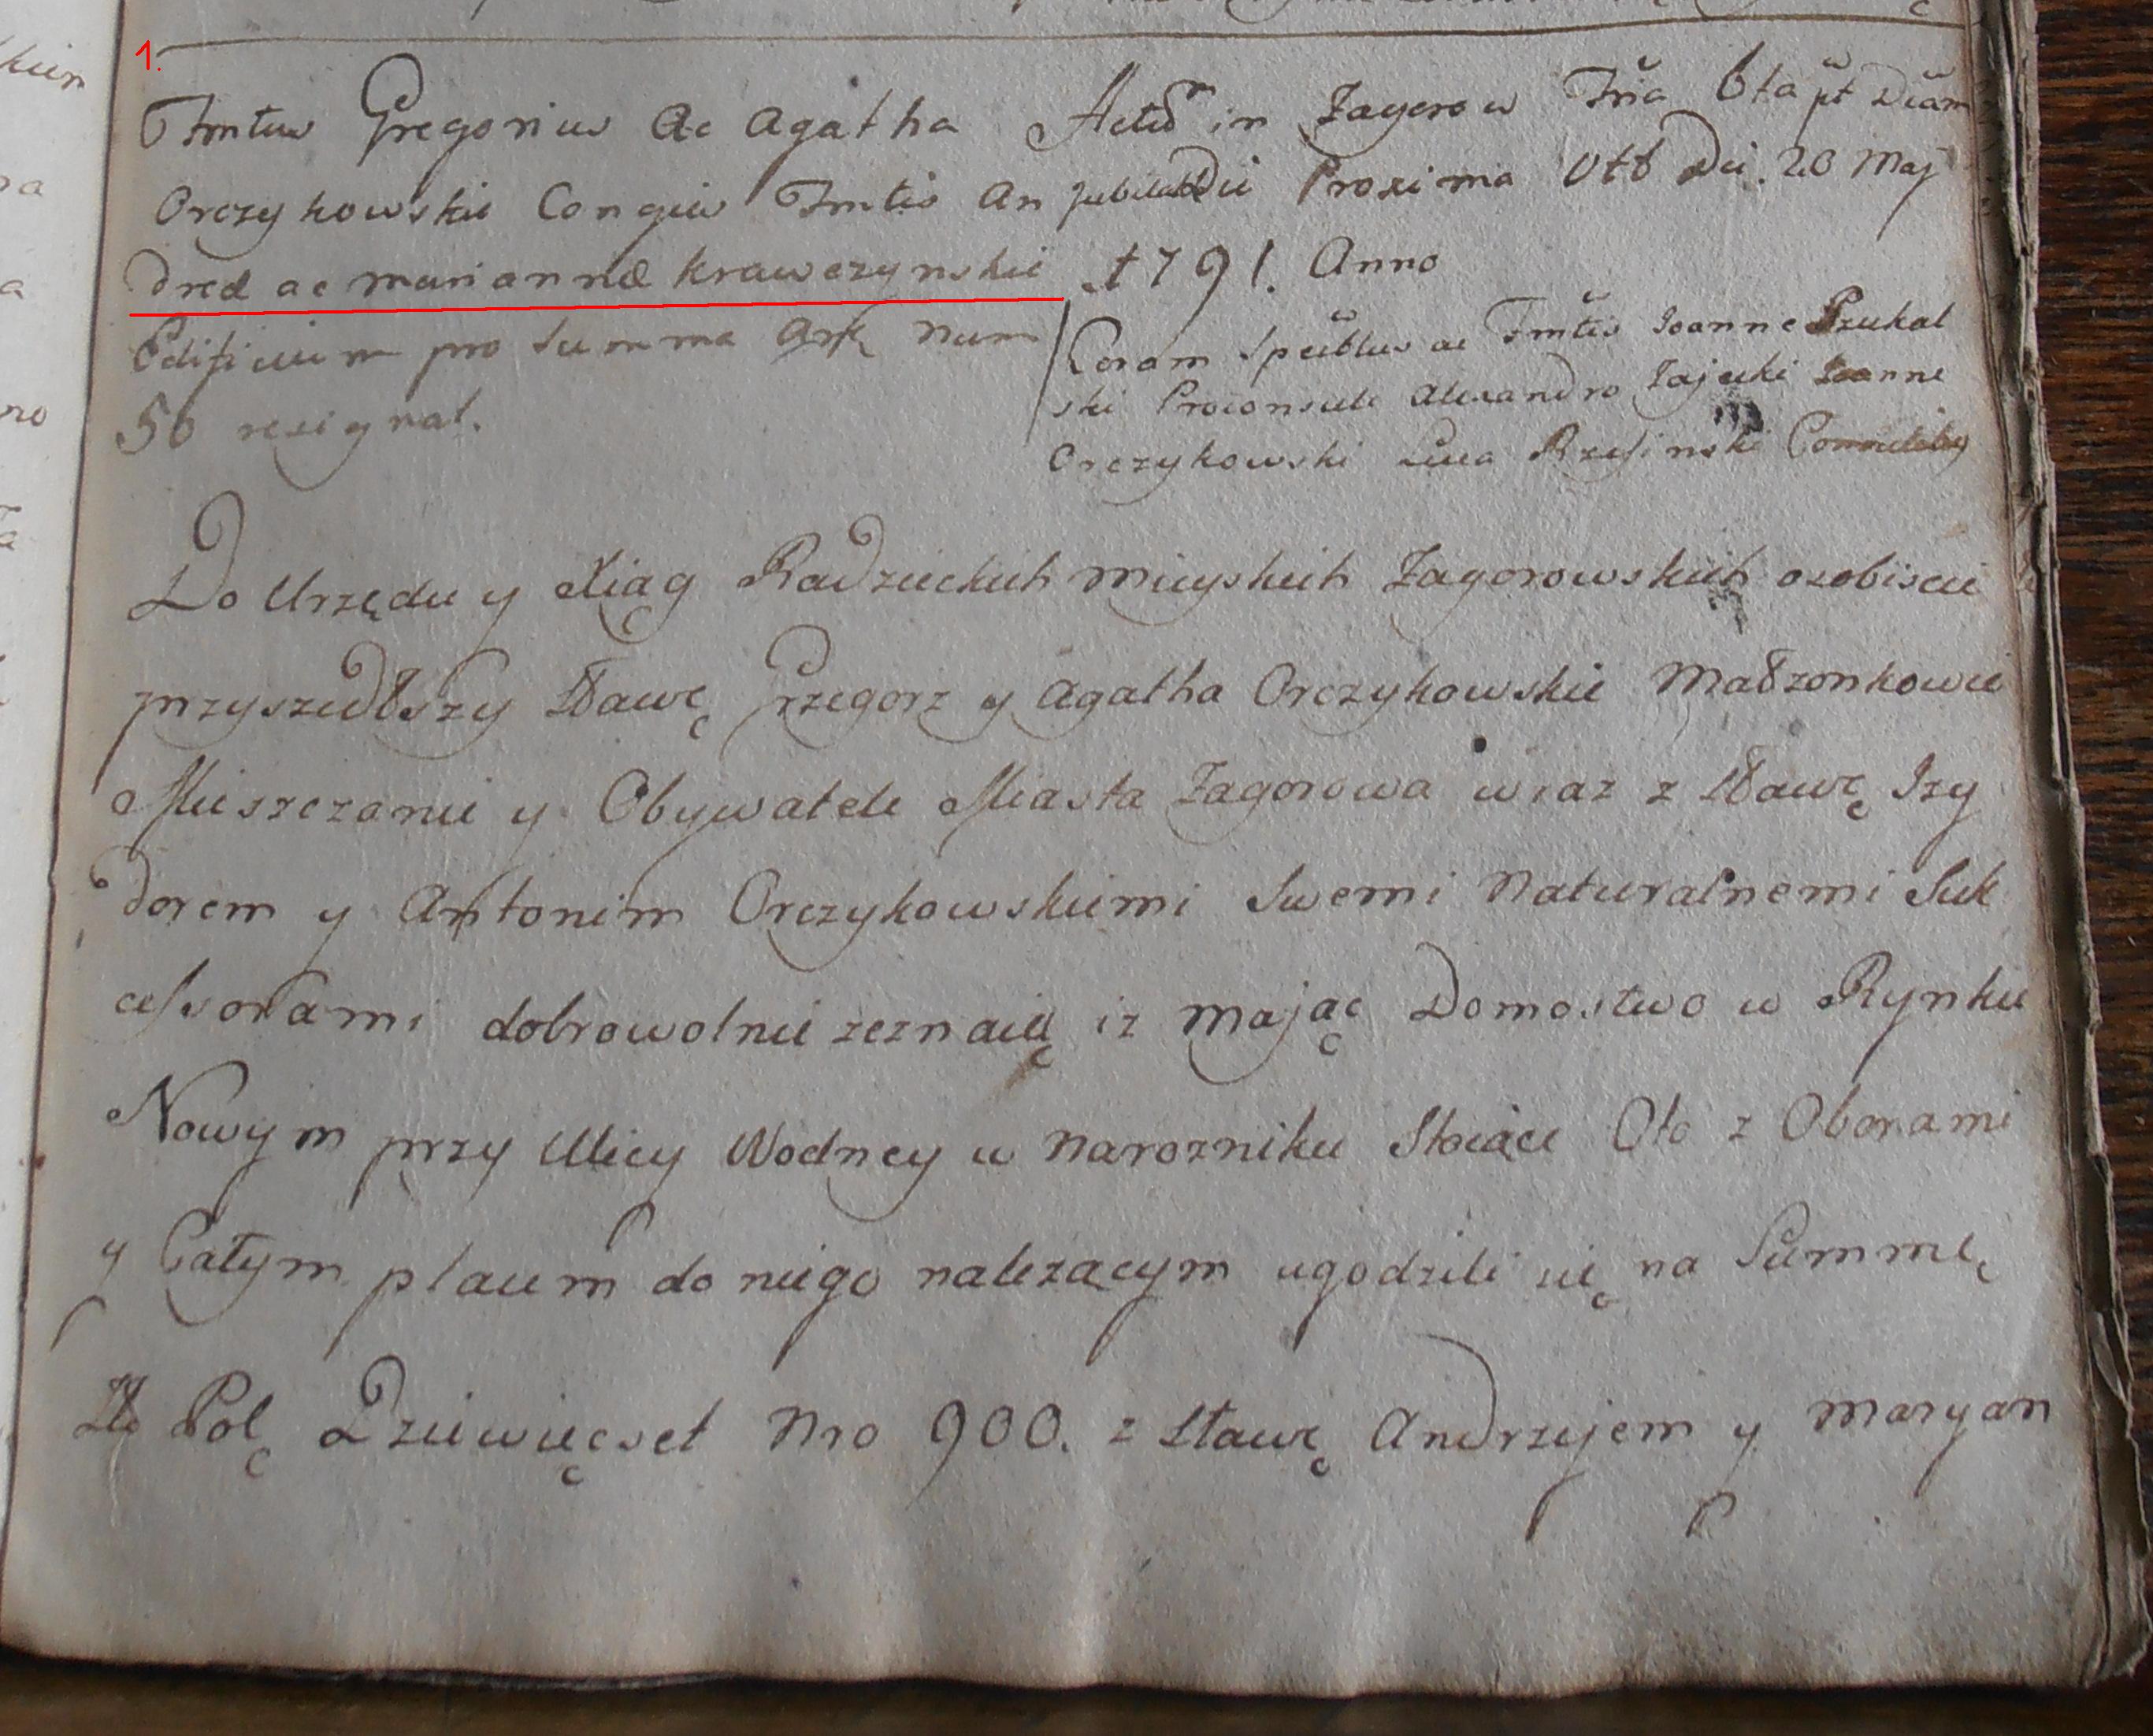 1.
Fmtus Gregorius Ac Agatha
Orczykowskie Congies Fmtis An
dreæ ac mariannæ Krawczynskie
Edificium pro Summa Num
50 resignat.
Actū in Zagorow Fria 6ta pt Dcam
Jubilate Die Proxima Utt Die. 20 Maj
1791. Anno
Coram Spetblus ac Fmtis Joanne Przukal
ski Proconsule Alexandro Zajecki Joanne
Orczykowski Luca Rzesinski
Do Urzędu y Xiąg Radzieckich mieyskich Zagorowskich osobiscie
przyszedłszy Sławę Grzegorz y Agatha Orczykowskie Małzonkowie
Mieszczanie y Obywatele Miasta Zagorowa wraz z Sławę Izy
dorem y Antonim Orczykowskiemi Swemi Naturalnemi Suk
cessorami dobrowolnie zeznaią iz mając Domostwo w Rynku
Nowym przy Ulicy Wodney w narozniku Stoiące Oto z Oborami
y Całym placem do niego nalezącym ugodzili się na Summę
Zło Polę Dziewięcset Nro 900. z Sławę Andrzejem y Maryan